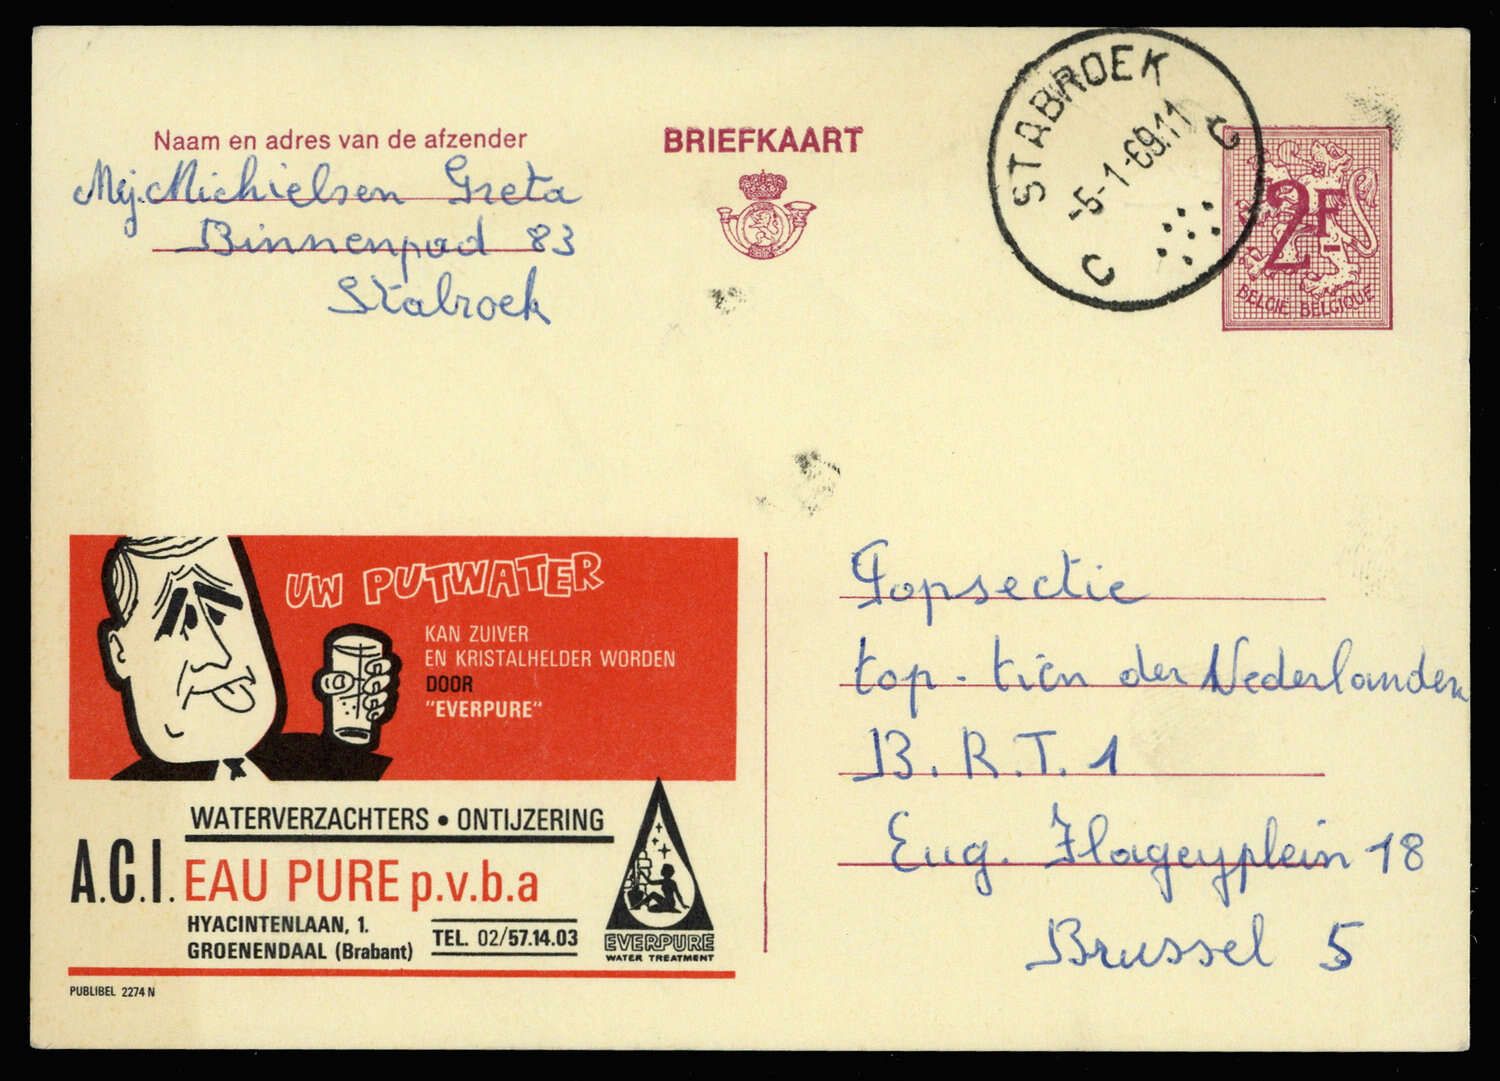 Naam en adres van de afzender
Mej. Michielsen Greta
Binnenpad 83
Stabroek
BRIEFKAART
STABROEK
-5-1-69.11
C C
2F
BELGIE BELGIQUE
UW PUTWATER
KAN ZUIVER
EN KRISTALHELDER WORDEN
DOOR
"EVERPURE"
WATERVERZACHTERS • ONTIJZERING
A.C.I. EAU PURE p.v.b.a
HYACINTENLAAN, 1.
GROENENDAAL (Brabant)
TEL. 02/57.14.03
EVERPURE
WATER TREATMENT
PUBLIBEL 2274 N
Popsectie
top-tien der Nederlanden
B.R.T. 1
Eug. Flageyplein 18
Brussel 5